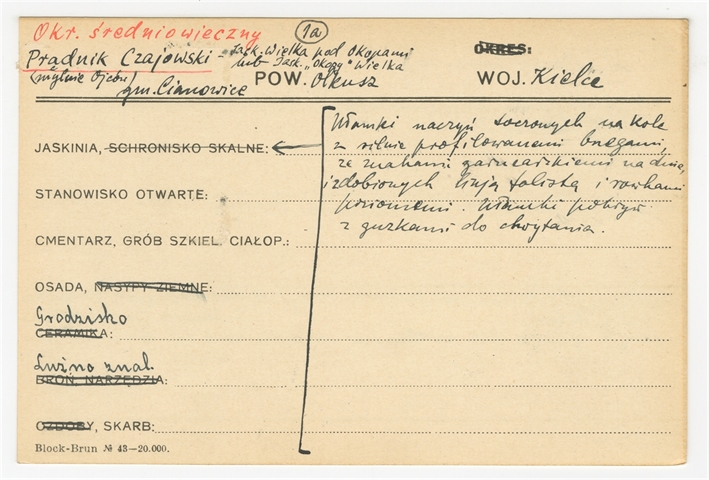 Okr. średniowieczny
1a
Prądnik Czajowski - Jask. Wielka pod Okopami
OKRES:
(mylnie Ojców) lub Jask. „Okopy" Wielka
gm. Cianowice POW. Olkusz WOJ. Kielce
Ułamki naczyń toczonych na kole
z silnie profilowanemi brzegami,
JASKINIA, SCHRONISKO SKALNE:
ze znakami garncarskiemi na dnie,
zdobionych linją falistą i rowkami
STANOWISKO OTWARTE:
poziomemi. Ułamki pokryw
z guzkami do chwytania.
CMENTARZ, GRÓB SZKIEL. CIAŁOP.:
OSADA, NASYPY ZIEMNE:
Grodzisko
CERAMIKA:
Luźno znal.
BROŃ, NARZĘDZIA:
OZDOBY, SKARB:
Block-Brun № 43—20.000.